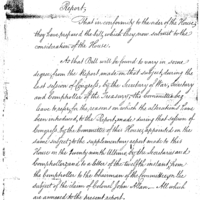 Report,
That in conformity to the order of the House,
they have prepared the bill, which they now submit to the
consideration of the House.
As that Bill will be found to vary in some
degree from the Report made on that subject, during the
last session of Congress, by the Secretary of War, Secretary
and Comptroller of the Treasury the Committee beg
leave to refer for the reasons on which the alterations have
been introduced, to the Report, made during that session of
Congress, by the Committee of this House, appointed on the
same subject, to the supplementary report made to this
House on the twenty ninth Ultimo, by the Secretaries and
Comptroller, and to a letter of the twelfth instant from
the Comptroller to the Chairman of the Committee, on the
subject of the claim of Colonel John Allan. All which
are annexed to the present report.